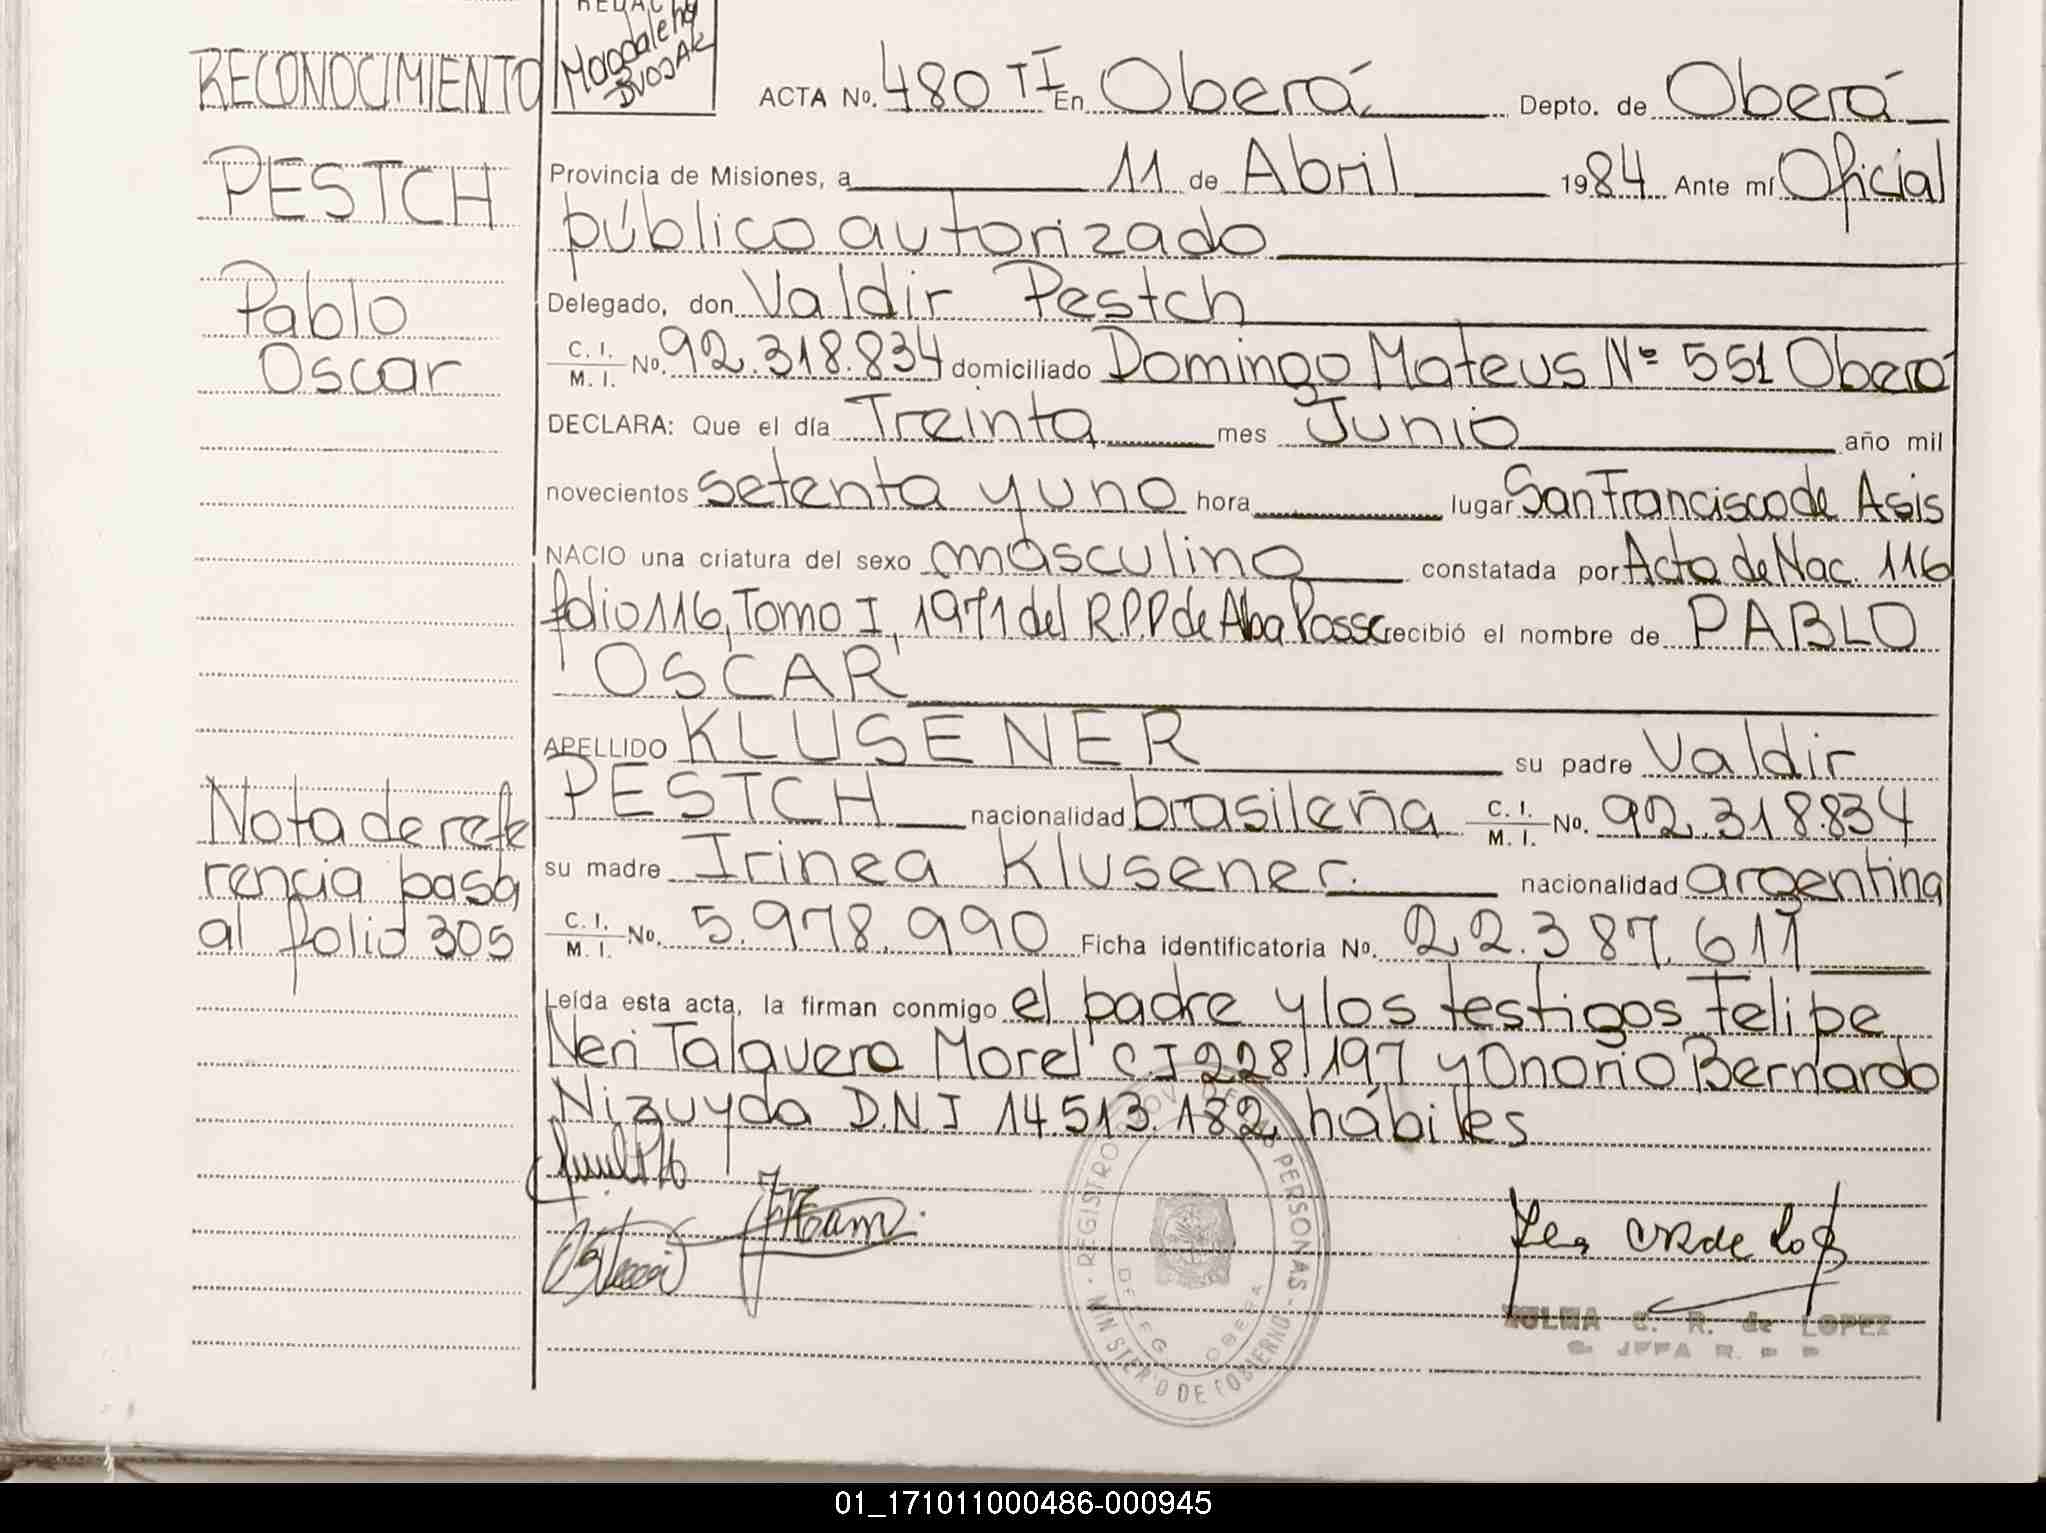 REDAC
Magdalena
RECONOCIMIENTO
ACTA No. 480 TI En Oberá Depto. de Oberá
PESTCH
Provincia de Misiones, a 11 de Abril 1984 Ante mí Oficial
público autorizado
Pablo
Delegado, don Valdir Pestch
Oscar
C. I.
M. I. No. 92.318.834 domiciliado Domingo Mateus Nº 551 Oberá
DECLARA: Que el día Treinta mes Junio año mil
novecientos setenta y uno hora lugar San Francisco de Asis
NACIO una criatura del sexo masculino constatada por Acta de Nac. 116
folio 116, Tomo I, 1971 del R.P.P de Alba Posse recibió el nombre de PABLO
OSCAR
APELLIDO KLUSENER su padre Valdir
PESTCH nacionalidad brasileña C. I. M. I. No. 92.318.834
Nota de refe
rencia pasa
al folio 305
su madre Irinea Klusener. nacionalidad argentina
C. I.
M. I. No. 5.978.990 Ficha identificatoria No. 22.387.611
Leída esta acta, la firman conmigo el padre y los testigos Felipe
Neri Talavera Morel C.I 228.197 y Onorio Bernardo
Nizuyda D.N.I 14.513.182, hábiles
REGISTRO PROV. DE LAS PERSONAS
MINISTERIO DE GOBIERNO
DELEG. OBERA
ZULMA C. R. de LOPEZ
JEFA R. P. P.
01_171011000486-000945